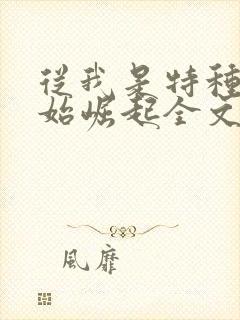 從我是特種
始崛起全文
風靡